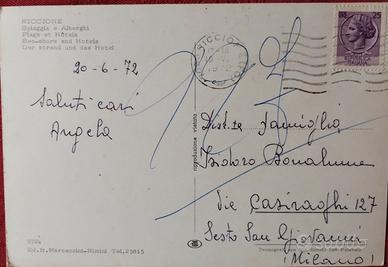 RICCIONE
Spiaggia e Alberghi
Plage et Hotels
Sea-shore and Hotels
Der strand und das Hotel
20-6-72
Saluti cari
Angela
RICCIONE
riproduzione vietata
Dist.ta Famiglia
Isidoro Bonalume
Via Casiraoghi 127
Sesto San Giovanni
(Milano)
Ed. D. Marcaccini-Rimini Tel. 25815